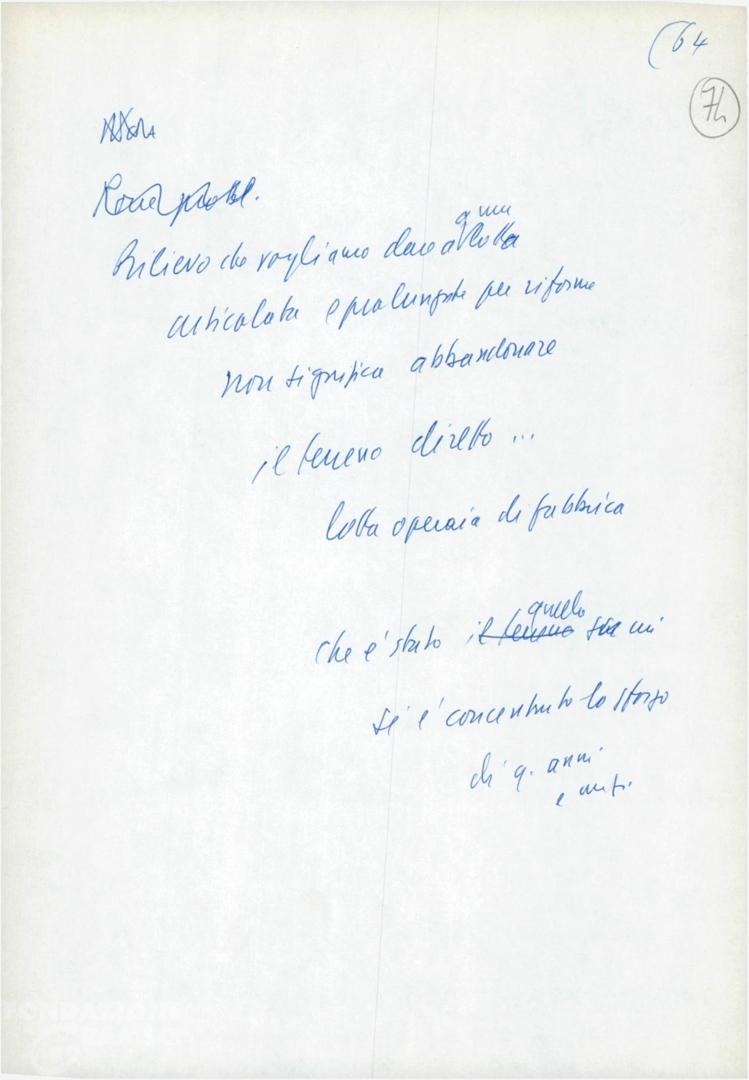 (64
74
Rilievo che vogliamo dare a una lotta
articolata e prolungata per riforme
non significa abbandonare
il terreno diretto ...
lotta operaia di fabbrica
che è stato il terreno quello su cui
si è concentrato lo sforzo
di q. anni
e
FONDAZIONE